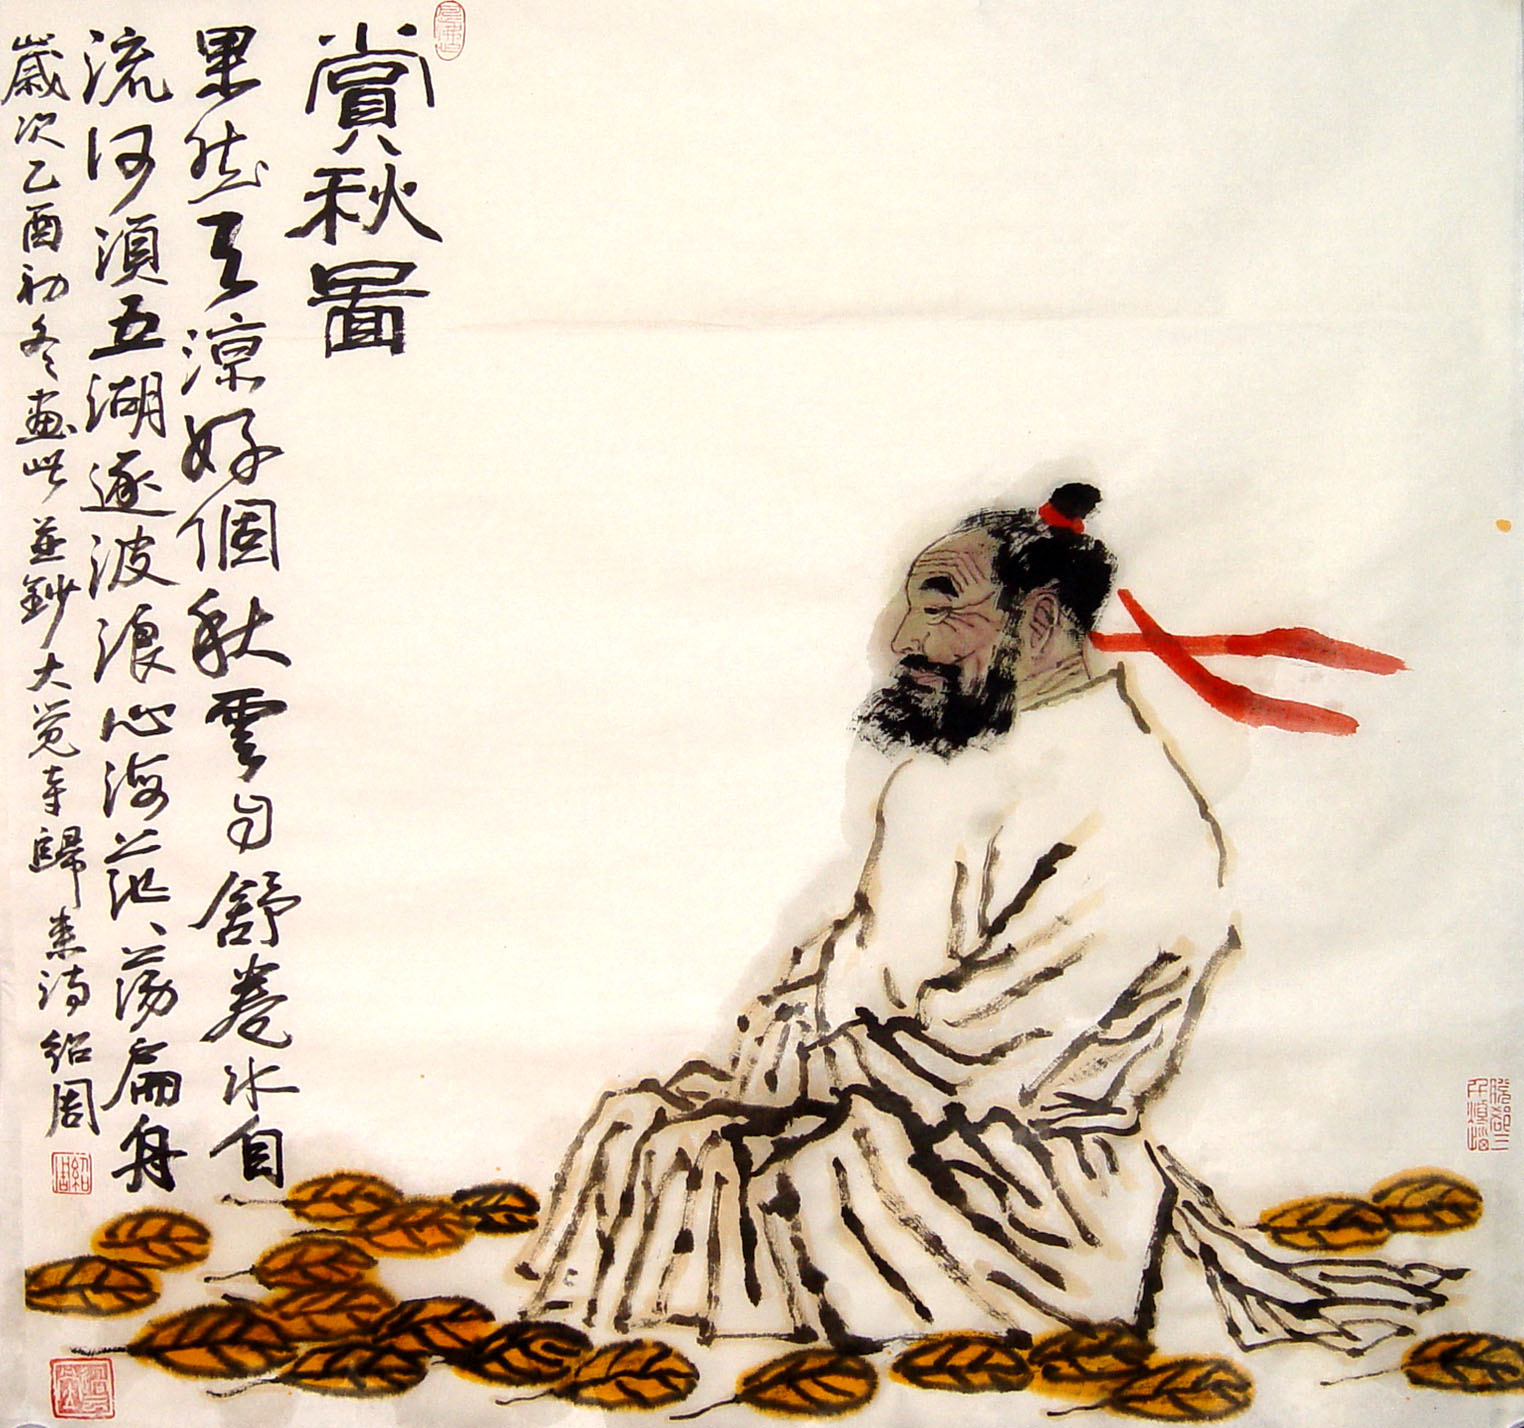 賞秋圖
果然天凉好個秋雲自舒卷水自
流何須五湖逐波浪心海上泛、蕩扁舟
歲次乙酉初冬畫此並鈔大觉寺歸来詩 紹周
紹周